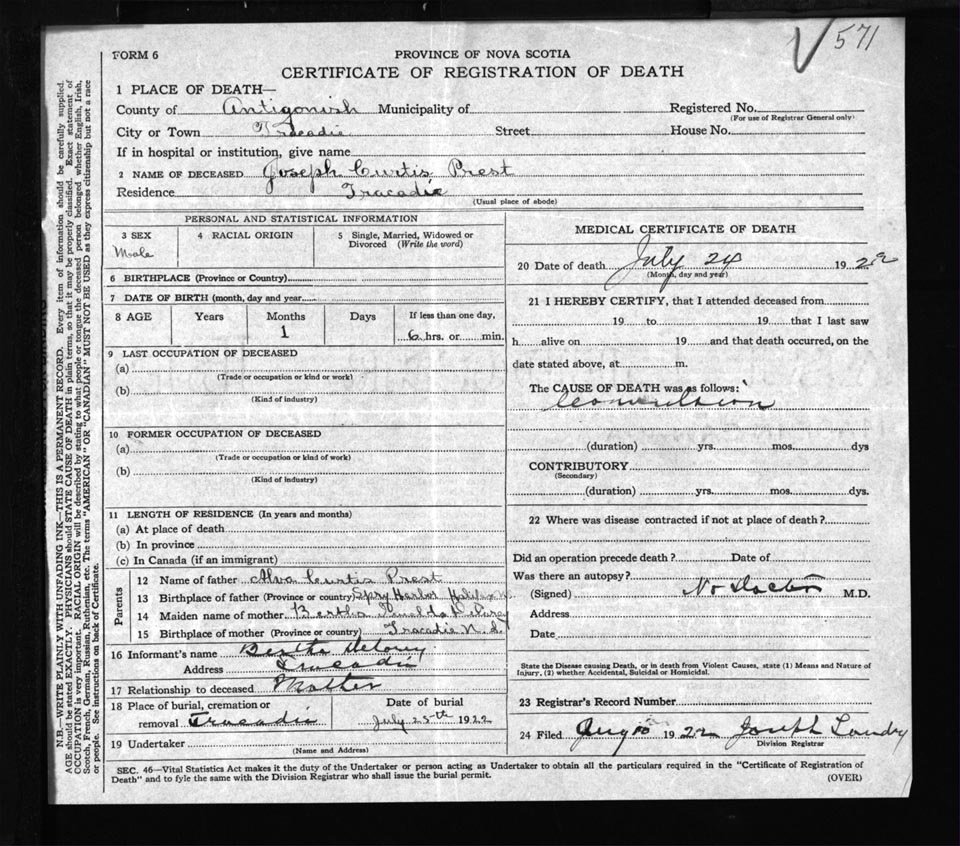 571
FORM 6
PROVINCE OF NOVA SCOTIA
CERTIFICATE OF REGISTRATION OF DEATH
1 PLACE OF DEATH—
County of Antigonish Municipality of
Registered No.
(For use of Registrar General only)
City or Town Tracadie Street House No.
If in hospital or institution, give name
2 NAME OF DECEASED Joseph Curtis Prest
Residence Tracadie
(Usual place of abode)
PERSONAL AND STATISTICAL INFORMATION
3 SEX 4 RACIAL ORIGIN 5 Single, Married, Widowed or
Divorced (Write the word)
Male
6 BIRTHPLACE (Province or Country)
7 DATE OF BIRTH (month, day and year
8 AGE Years Months Days If less than one day,
1 6 hrs. or min.
9 LAST OCCUPATION OF DECEASED
(a)
(Trade or occupation or kind or work)
(b)
(Kind of industry)
10 FORMER OCCUPATION OF DECEASED
(a)
(Trade or occupation or kind of work)
(b)
(Kind of industry)
11 LENGTH OF RESIDENCE (In years and months)
(a) At place of death
(b) In province
(c) In Canada (if an immigrant)
Parents
12 Name of father Alva Curtis Prest
13 Birthplace of father (Province or country) Spry Harbor Halifax
14 Maiden name of mother Bertha Delorey
15 Birthplace of mother (Province or country) Tracadie N.S.
16 Informant's name Bertha Delorey
Address Tracadie
17 Relationship to deceased Mother
18 Place of burial, cremation or Date of burial
removal Tracadie July 25th 1922
19 Undertaker
(Name and Address)
MEDICAL CERTIFICATE OF DEATH
20 Date of death July 24 1922
(Month, day and year)
21 I HEREBY CERTIFY, that I attended deceased from
19 to 19 that I last saw
h alive on 19 and that death occurred, on the
date stated above, at m.
The CAUSE OF DEATH was as follows:
Convulsion
(duration) yrs. mos. dys
CONTRIBUTORY
(Secondary)
(duration) yrs. mos. dys.
22 Where was disease contracted if not at place of death?
Did an operation precede death? Date of
Was there an autopsy?
(Signed) No Doctor M.D.
Address
Date
State the Disease causing Death, or in death from Violent Causes, state (1) Means and Nature of
Injury, (2) whether Accidental, Suicidal or Homicidal.
23 Registrar's Record Number
24 Filed Aug 10 1922 Joseph Landry
Division Registrar
SEC. 46—Vital Statistics Act makes it the duty of the Undertaker or person acting as Undertaker to obtain all the particulars required in the "Certificate of Registration of
Death" and to fyle the same with the Division Registrar who shall issue the burial permit. (OVER)
N.B.—WRITE PLAINLY WITH UNFADING INK—THIS IS A PERMANENT RECORD. Every item of information should be carefully supplied.
AGE should be stated EXACTLY. PHYSICIANS should STATE CAUSE OF DEATH in plain terms, so that it may be properly classified. Exact statement of
OCCUPATION is very important. RACIAL ORIGIN will be described by stating to what people or tongue the deceased person belonged whether English, Irish,
Scotch, French, German, Russian, Ruthenian, etc. The terms "AMERICAN" OR "CANADIAN" MUST NOT BE USED as they express citizenship but not a race
or people. See instructions on back of Certificate.